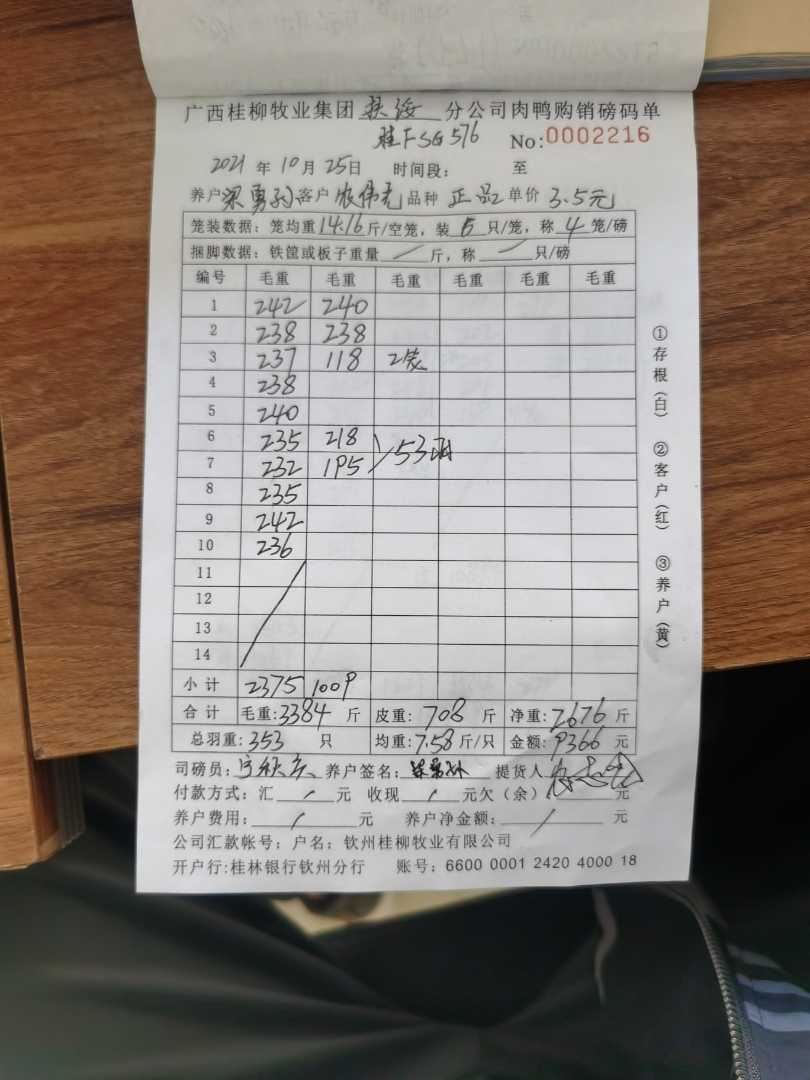 广西桂柳牧业集团 扶绥 分公司肉鸭购销磅码单
桂FSG576 No:0002216
2021 年 10 月 25 日 时间段: 至
养户 梁勇孙 客户 农伟 品种 正品 单价 3.5元
笼装数据: 笼均重 14.16 斤/空笼, 装 5 只/笼, 称 4 笼/磅
捆脚数据: 铁筐或板子重量 / 斤, 称 / 只/磅
编号 毛重 毛重 毛重 毛重 毛重 毛重
1 242 240
2 238 238
3 237 118 2笼
4 238
5 240
6 235 218
7 232 195 53只
8 235
9 242
10 236
11
12
13
14
小计 2375 1009
合计 毛重: 3384 斤 皮重: 708 斤 净重: 2676 斤
总羽重: 353 只 均重: 7.58 斤/只 金额: 9366 元
司磅员: 养户签名: 梁勇孙 提货人
付款方式: 汇 / 元 收现 / 元 欠(余) / 元
养户费用: / 元 养户净金额: / 元
公司汇款帐号: 户名: 钦州桂柳牧业有限公司
开户行:桂林银行钦州分行 账号: 6600 0001 2420 4000 18
①存根(白) ②客户(红) ③养户(黄)